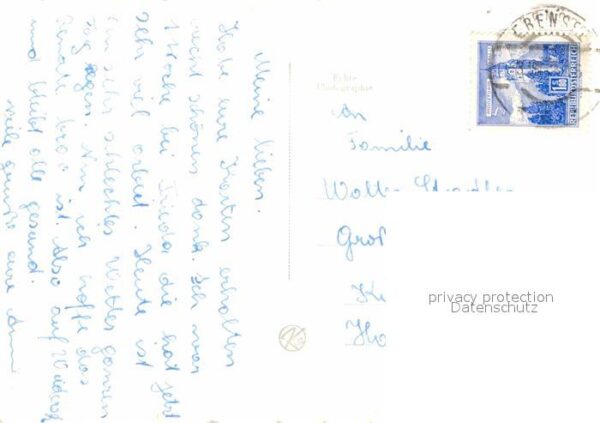 Meine lieben.
Habe eure Karten erhalten
recht schönen dank. Ich war
1 Woche bei Frieda die hat jetzt
sehr viel arbeit. Heute ist
ein sehr schlechtes Wetter ganzen
Tag Regen. Nun ich hoffe das
Renate brav ist. Also auf Wieders
und bleibt alle gesund.
viele grüße eure
Echte
Photographie
An
Familie
Groß
Ke
Ho
EBENS
REPUBLIK ÖSTERREICH
privacy protection
Datenschutz